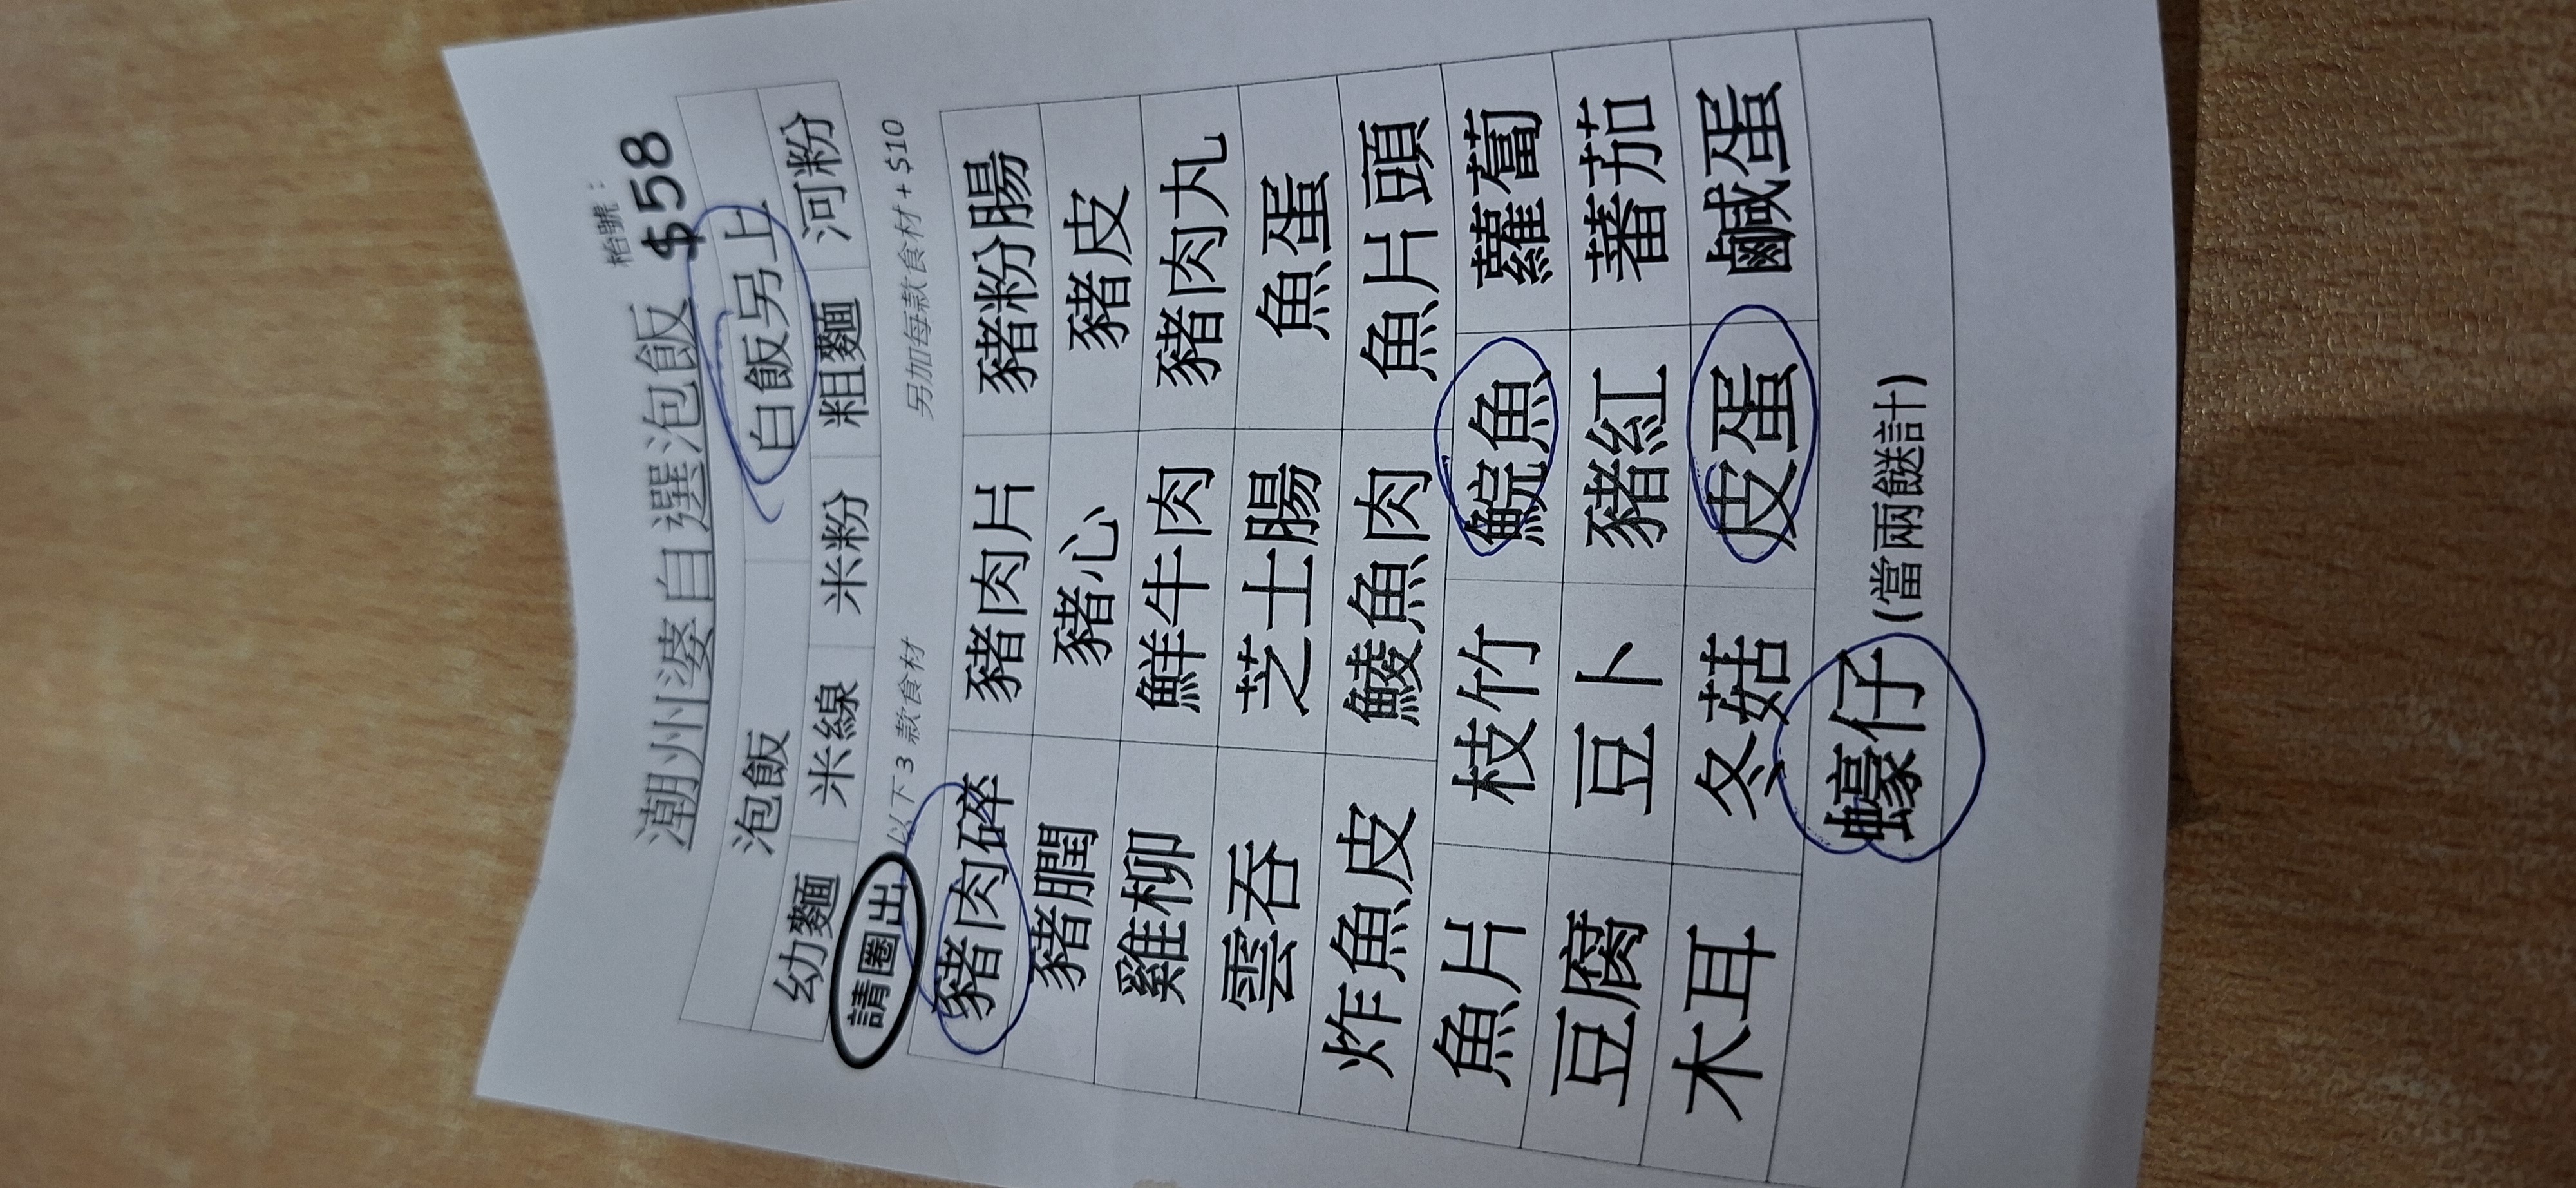 枱號：
潮州婆自選泡飯 $58
泡飯 白飯另上
幼麵 米線 米粉 粗麵 河粉
請圈出 以下3 款食材 另加每款食材+$10
豬肉碎 豬肉片 豬粉腸
豬膶 豬心 豬皮
雞柳 鮮牛肉 豬肉丸
雲吞 芝士腸 魚蛋
炸魚皮 鯪魚肉 魚片頭
魚片 枝竹 鯇魚 蘿蔔
豆腐 豆卜 豬紅 蕃茄
木耳 冬菇 皮蛋 鹹蛋
蠔仔 (當兩餸計)